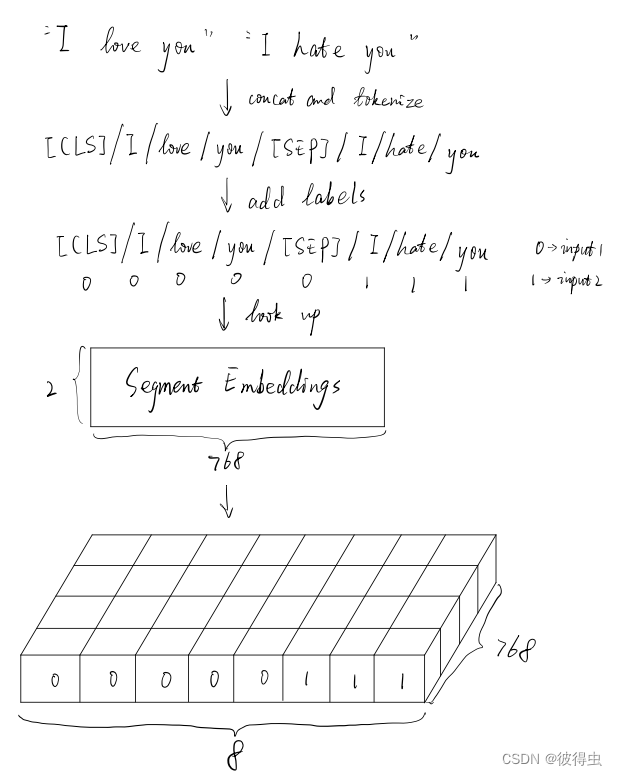 "I love you" "I hate you"
concat and tokenize
[CLS]/I/love/you/[SEP]/I/hate/you
add labels
[CLS]/I/love/you/[SEP]/I/hate/you 0→input1
0 0 0 0 0 1 1 1 1→input2
look up
2 Segment Embeddings
768
0 0 0 0 0 1 1 1 768
8
CSDN @彼得虫